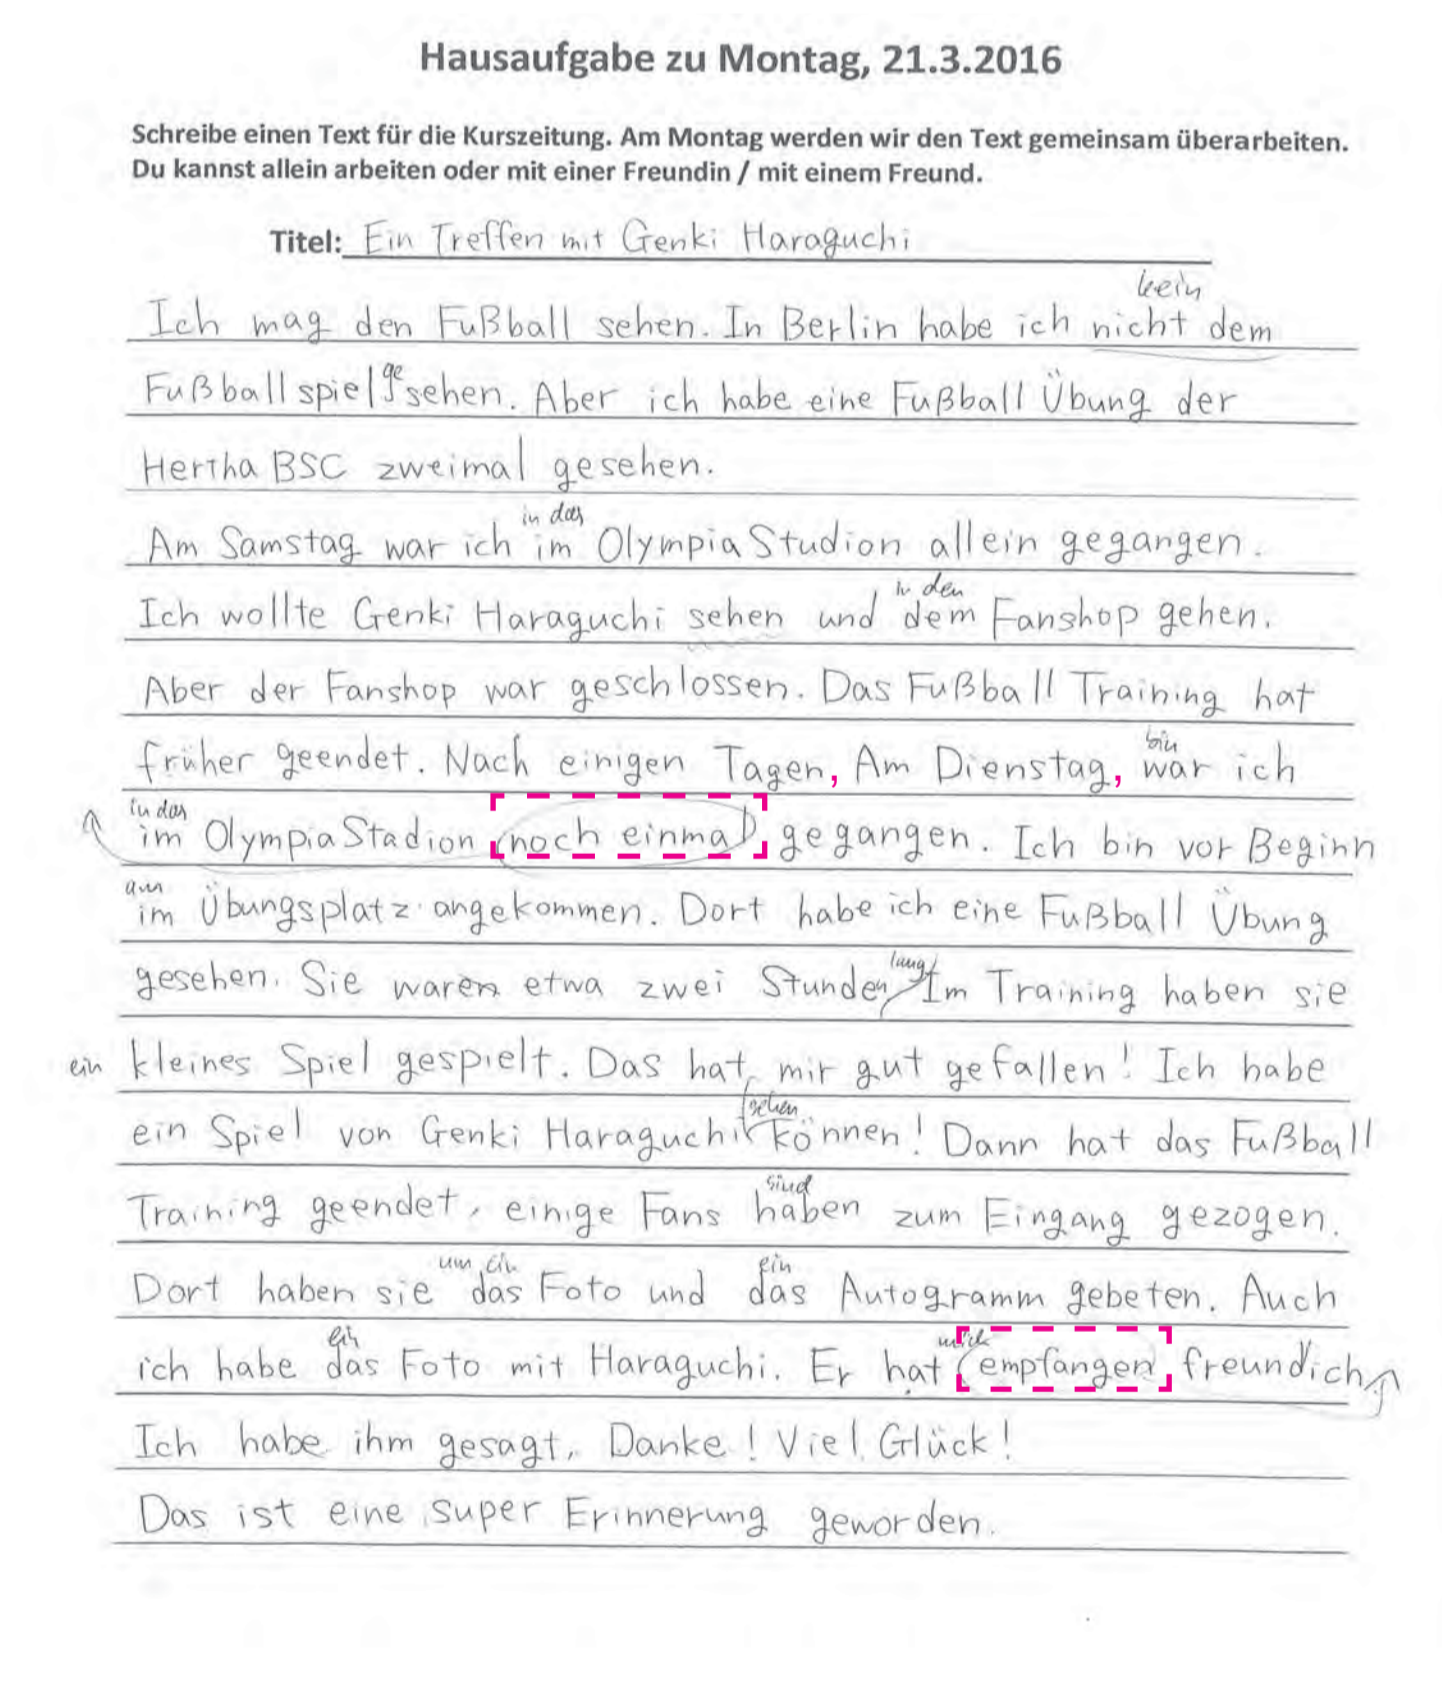 Hausaufgabe zu Montag, 21.3.2016
Schreibe einen Text für die Kurszeitung. Am Montag werden wir den Text gemeinsam überarbeiten.
Du kannst allein arbeiten oder mit einer Freundin / mit einem Freund.
Titel: Ein Treffen mit Genki Haraguchi
kein
Ich mag den Fußball sehen. In Berlin habe ich nicht dem
ge
Fußballspiel sehen. Aber ich habe eine Fußball Übung der
Hertha BSC zweimal gesehen.
in das
Am Samstag war ich im Olympia Studion allein gegangen.
in den
Ich wollte Genki Haraguchi sehen und dem Fanshop gehen.
Aber der Fanshop war geschlossen. Das Fußball Training hat
bin
früher geendet. Nach einigen Tagen, Am Dienstag, war ich
in das
im Olympia Stadion (noch einmal) gegangen. Ich bin vor Beginn
am
im Übungsplatz angekommen. Dort habe ich eine Fußball Übung
lang
gesehen. Sie waren etwa zwei Stunden Im Training haben sie
ein kleines Spiel gespielt. Das hat mir gut gefallen! Ich habe
sehen
ein Spiel von Genki Haraguchi können! Dann hat das Fußball
sind
Training geendet, einige Fans haben zum Eingang gezogen.
um ein ein
Dort haben sie das Foto und das Autogramm gebeten. Auch
ein mich
ich habe das Foto mit Haraguchi. Er hat (empfangen) freundich
Ich habe ihm gesagt, Danke! Viel Glück!
Das ist eine super Erinnerung geworden.